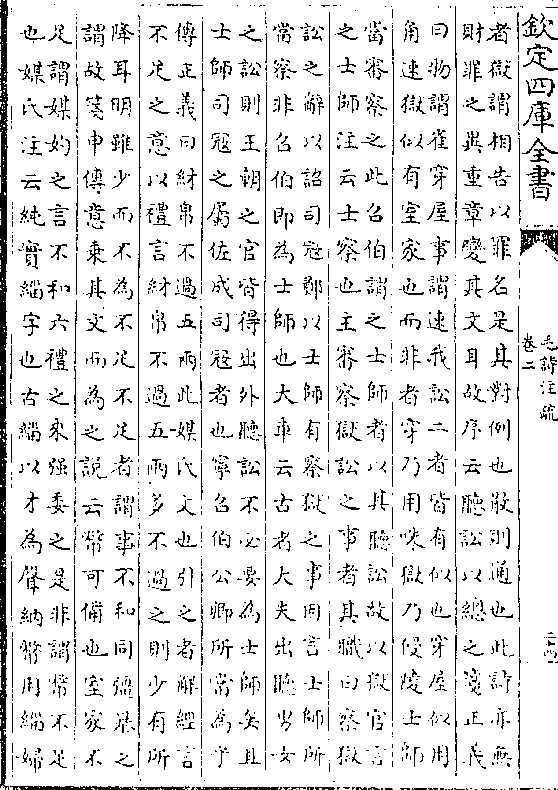 欽定四庫全書
毛詩注疏
卷二
者獄謂相告以罪名是其對例也散則通也此詩亦無
財罪之異重章變其文耳故序云聽訟以總之箋正義
曰物謂雀穿屋事謂速我訟二者皆有似也穿屋似用
角速獄似有室家也而非者穿乃用咮獄乃侵陵士師
當審察之此召伯謂之士師者以其聽訟故以獄官言
之士師注云士察也主審察獄訟之事者其職曰察獄
訟之辭以詔司冦鄭以士師有察獄之事因言士師所
當察非召伯即為士師也大車云古者大夫出聽男女
之訟則王朝之官皆得出外聽訟不必要為士師矣且
士師司冦之屬佐成司冦者也寧召伯公卿所當為乎
傳正義曰紂帛不過五兩此媒氏文也引之者解經言
不足之意以禮言紂帛不過五兩多不過之則少有所
降耳明雖少而不為不足不足者謂事不和同彊暴之
謂故箋申傳意乗其文而為之說云幣可備也室家不
足謂媒妁之言不和六禮之來强委之是非謂幣不足
也媒氏注云純實緇字也古緇以才為聲納幣用緇婦